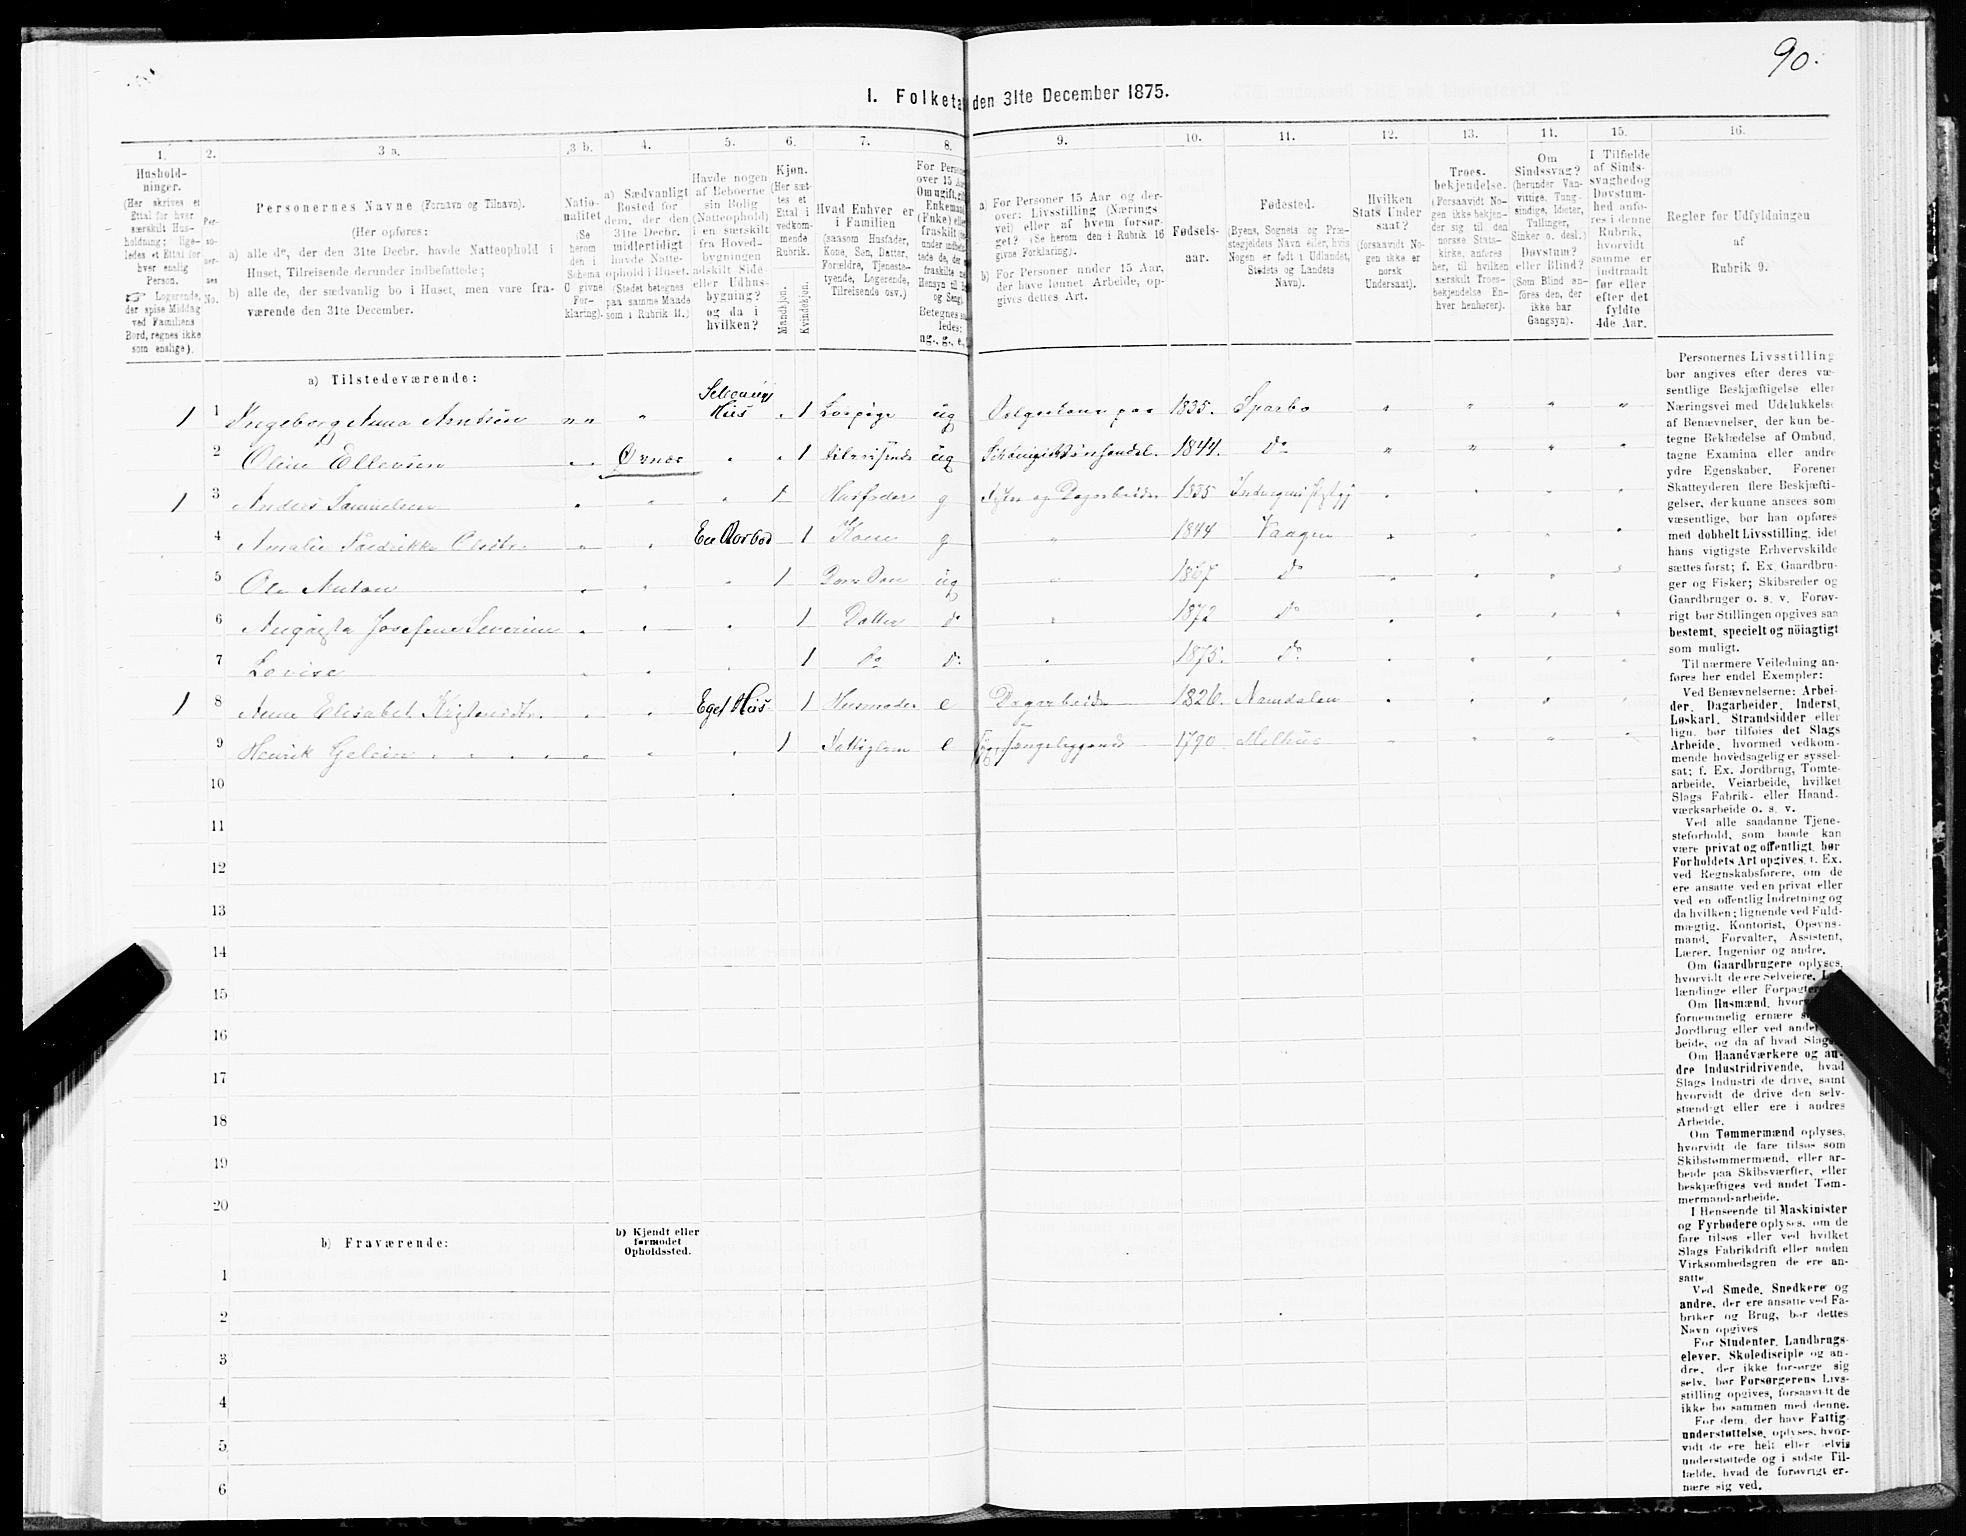 90.
1. Folketa den 31te December 1875.
1. 2. 3 a. 3 b. 4. 5. 6. 7. 8. 9. 10. 11. 12. 13. 14. 15. 16.
Hushold-
ninger.
(Her skrives et
Ettal for hver
særskilt Hus-
holdning; lige-
ledes et Ettal for
hver enslig
Person.
☞ Logerende,
der spise Middag
ved Familiens
Bord, regnes ikke
som enslige).
Per-
so-
ner-
nes
No.
Personernes Navne (Fornavn og Tilnavn).
(Her opføres:
a) alle de, der den 31te Decbr. havde Natteophold i
Huset, Tilreisende derunder indbefattede;
b) alle de, der sædvanlig bo i Huset, men vare fra-
værende den 31te December.
Natio-
nalitet
(Se
herom
den i
Schema
O givne
For-
klaring).
a) Sædvanligt
Bosted for
dem, der den
31te Decbr.
midlertidigt
havde Natte-
ophold i Huset.
(Stedet betegnes
paa samme Maade
som i Rubrik 11.)
Havde nogen
af Beboerne
sin Bolig
(Natteophold)
i en særskilt
fra Hoved-
bygningen
adskilt Side-
eller Udhus-
bygning?
og da i
hvilken?
Kjøn.
(Her sæt-
tes et
Ettal i
vedkom-
mende
Rubrik.
Mandkjøn.
Kvindekjøn.
Hvad Enhver er
i Familien
(saasom Husfader,
Kone, Søn, Datter,
Forældre, Tjeneste-
tyende, Logerende,
Tilreisende osv.)
For Person
over 15 Aar
Om ugift, gift
Enkemand
(Enke) eller
fraskilt
ledes:
ug., g., e.,
a) For Personer 15 Aar og der-
over: Livsstilling (Nærings-
vei) eller af hvem forsør-
get? (Se herom den i Rubrik 16
givne Forklaring).
b) For Personer under 15 Aar,
der have lønnet Arbeide, op-
gives dettes Art.
Fødsels-
aar.
Fødested.
(Byens, Sognets og Præ-
stegjeldets Navn eller, hvis
Nogen er født i Udlandet,
Stedets og Landets
Navn).
Hvilken
Stats Under
saat?
(forsaavidt No-
gen ikke er
norsk
Undersaat).
Troes-
bekjendelse.
(Forsaavidt No-
gen ikke bekjen-
der sig til den
norske Stats-
kirke, anføres
her, til hvilken
særskilt Troes-
bekjendelse En-
hver henhører).
Om
Sindssvag?
(herunder Van-
vittige, Tung-
sindige, Idioter,
Tullinger,
Sinker o. desl.)
Døvstum?
eller Blind?
(Som Blind an-
føres den, der
ikke har
Gangsyn).
I Tilfælde
af Sinds-
svaghed og
Døvstum-
hed anfø-
res i denne
Rubrik,
hvorvidt
samme er
indtraadt
før eller
efter det
fyldte
4de Aar.
Regler for Udfyldningen
af
Rubrik 9.
a) Tilstedeværende:
1 1 Ingeborg Anna Arntsen nn " Hus 1 ug 1835. Sparbo
2 Oline Ellevsen Ørnæs 1 tilreisende ug 1844. Do
1 3 Anders Samuelsen 1 Husfader g og Dagarbeider 1835
4 Amalie Fredrikke Olsdtr. 1 Kone g 1844 Vaagen
5 Ole Anton 1 Søn ug 1867 Do
6 Augusta Josefine Severine 1 Datter do 1872 Do
7 Lovise 1 Do Do 1875. Do
1 8 Anne Elisabet Kristensdtr. Eget Hus 1 Husmoder e Dagarbeide 1826. Namdalen
9 Henrik 1 Fattiglem e sengeliggende 1790 Melhus
10
11
12
13
14
15
16
17
18
19
20
b) Fraværende:
b) Kjendt eller
formodet
Opholdssted.
1
2
3
4
5
6
Personernes Livsstilling
bør angives efter deres væ-
sentlige Beskjæftigelse eller
Næringsvei med Udelukkelse
af Benævnelser, der kun be-
tegne Beklædelse af Ombud,
tagne Examina eller andre
ydre Egenskaber. Forener
Skatteyderen flere Beskjæfti-
gelser, der kunne ansees som
væsentlige, bør han opføres
med dobbelt Livsstilling, idet
hans vigtigste Erhvervskilde
sættes først; f. Ex. Gaardbru-
ger og Fisker; Skibsreder og
Gaardbruger o. s. v. Forøv-
rigt bør Stillingen opgives saa
bestemt, specielt og nöiagtigt
som muligt.
Til nærmere Veiledning an-
føres her endel Exempler:
Ved Benævnelserne: Arbei-
der, Dagarbeider, Inderst,
Løskarl, Strandsidder eller
lign. bør tilføies det Slags
Arbeide, hvormed vedkom-
mende hovedsagelig er syssel-
sat; f. Ex. Jordbrug, Tomte-
arbeide, Veiarbeide, hvilket
Slags Fabrik- eller Haand-
værksarbeide o. s. v.
Ved alle saadanne Tjene-
steforhold, som baade kan
være privat og offentligt, bør
Forholdets Art opgives, f. Ex.
ved Regnskabsførere, om de
ere ansatte ved en privat eller
ved en offentlig Indretning og
da hvilken; lignende ved Fuld-
mægtig, Kontorist, Opsyns-
mand, Forvalter, Assistent,
Lærer, Ingeniør og andre.
Om Gaardbrugere oplyses,
hvorvidt de ere Selveiere, L
lændinge eller Forpagter
Om Husmænd, hvor
fornemmelig ernære s
Jordbrug eller ved andet
beide, og da af hvad Slags
Om Haandværkere og an-
dre Industridrivende, hvad
Slags Industri de drive, samt
hvorvidt de drive den selv-
stændigt eller ere i andres
Arbeide.
Om Tømmermænd oplyses,
hvorvidt de fare tilsøs som
Skibstømmermænd, eller ar-
beide paa Skibsværfter, eller
beskjæftiges ved andet Tøm-
mermandsarbeide.
I Henseende til Maskinister
og Fyrbødere oplyses, om de
fare tilsøs eller ved hvilket
Slags Fabrikdrift eller anden
Virksomhedsgren de ere an-
satte.
Ved Smede, Snedkere og
andre, der ere ansatte ved Fa-
briker og Brug, bør dettes
Navn opgives
For Studenter, Landbrugs-
elever, Skoledisciple og an-
dre, der ikke forsørge sig
selv, bør Forsørgerens Livs-
stilling opgives, forsaavidt de
ikke bo sammen med denne.
For dem, der have Fattig-
understøttelse, oplyses, hvor-
vidt de ere helt eller delvis
understøttede og i sidste Til-
fælde, hvad de forøvrigt er-
nære sig ved.